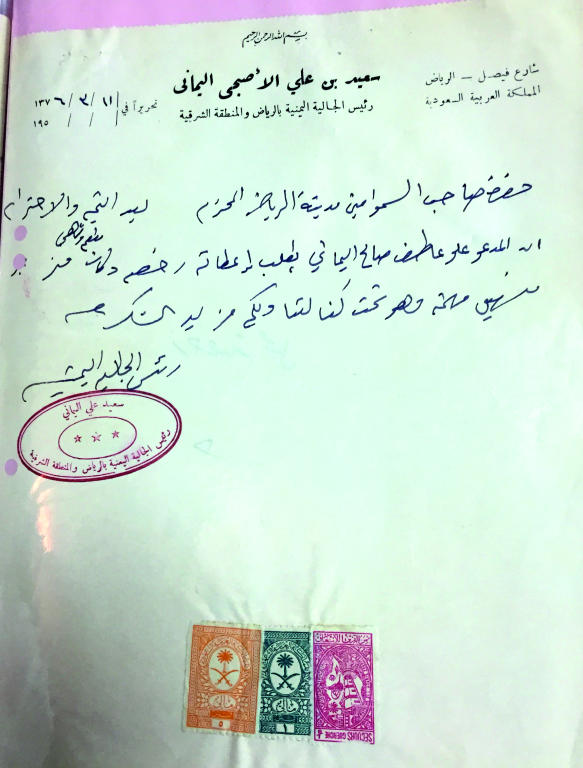 بسم الله الرحمن الرحيم
سعيد بن علي الأصبحى اليمانى
رئيس الجالية اليمنية بالرياض والمنطقة الشرقية
شارع فيصل - الرياض
المملكة العربية السعودية
تحريراً في ١١ / ٣ / ١٣٧٦
١٩٥ / /
حضرة صاحب السمو امين مدينة الرياض المحترم بعد التحية والاحترام
ان المدعو علي صالح اليماني يطلب اعطائه رخصه
وهو تحت كفالتنا ولكم مزيد الشكر
رئيس الجالية اليمنية
سعيد علي اليماني
رئيس الجالية اليمنية بالرياض والمنطقة الشرقية
٥
١
SECOURS GUERRE